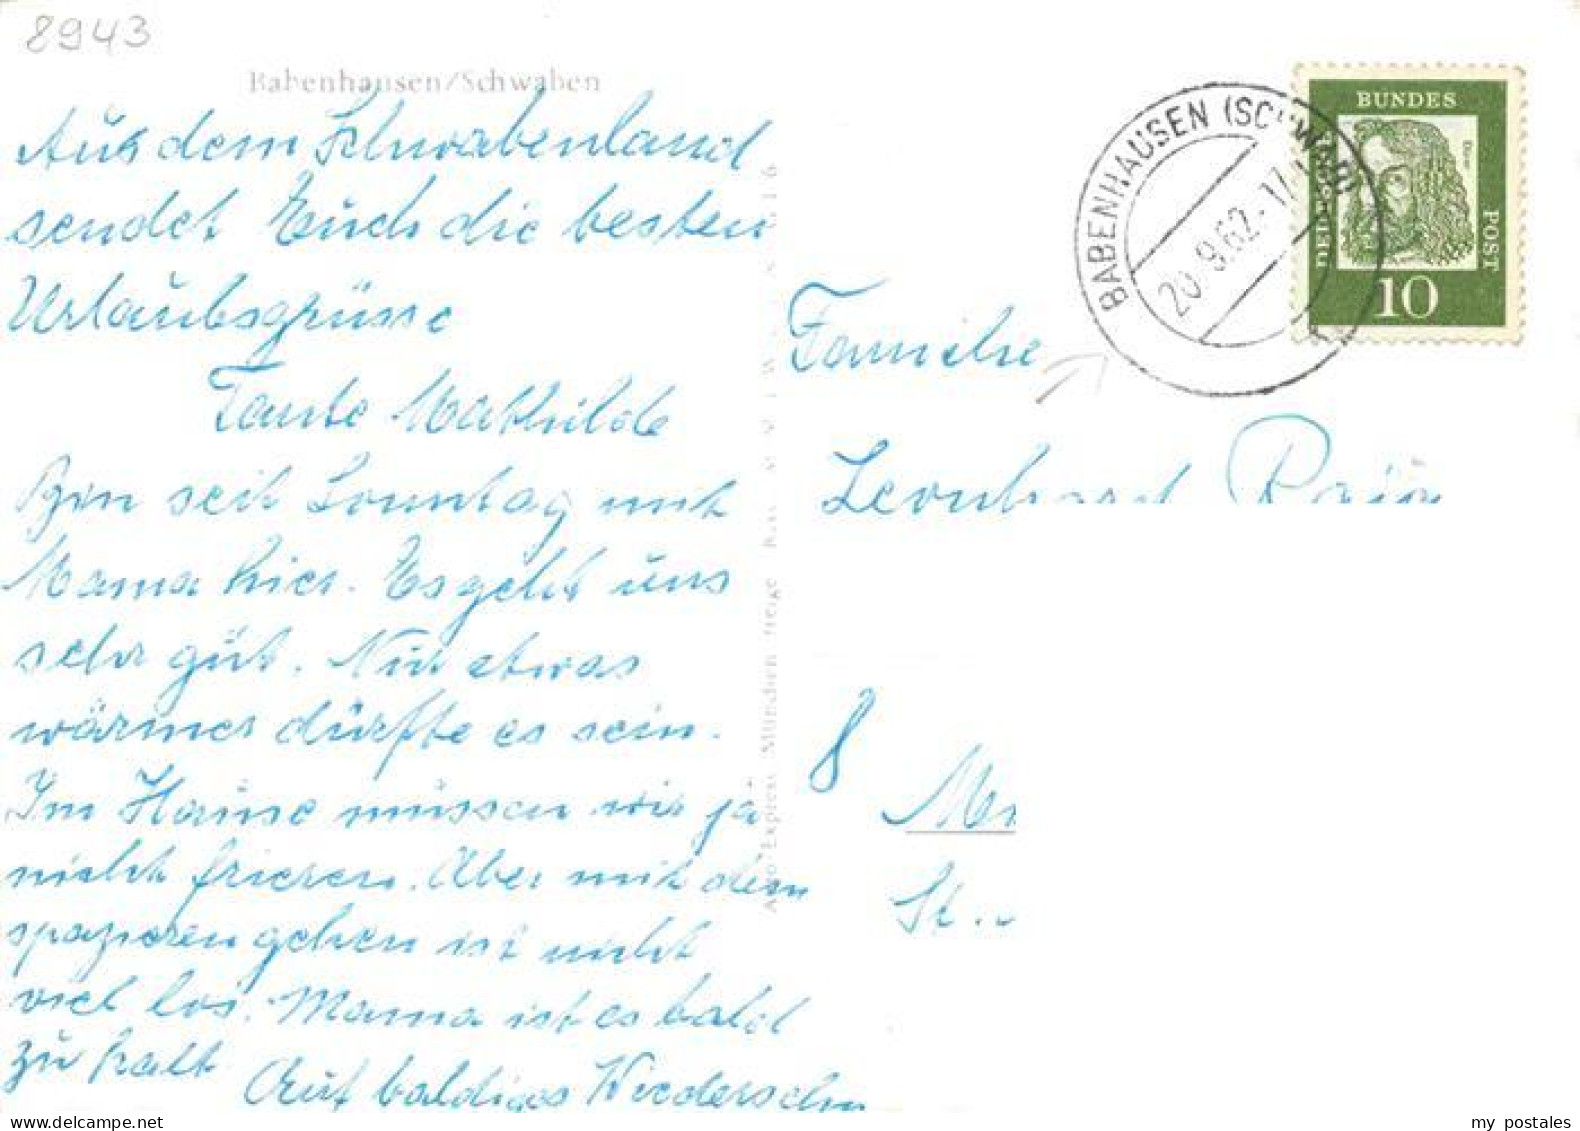 8943
Babenhausen/Schwaben
Aus dem Schwabenland
sendet Euch die besten
Urlaubsgrüsse
Tante Mathilde
Bin seit Sonntag mit
Mama hier. Es geht uns
sehr gut. Nur etwas
wärmer dürfte es sein.
Im Hause müssen wir ja
nicht frieren. Aber mit dem
spazieren gehen ist nicht
viel los. Mama ist es bald
zu kalt
Auf baldiges Wiedersehn
München
BABENHAUSEN (SCHWAB)
20.9.62.-17
BUNDES
POST
DEUTSCHE
10
Familie
Leonhard
8
St.
my postales